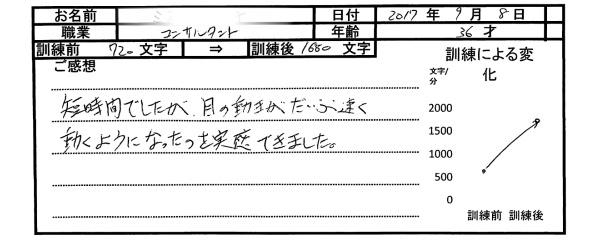 お名前 日付 2017 年 9 月 8 日
職業 コンサルタント 年齢 36 才
訓練前 720 文字 ⇒ 訓練後 1680 文字
ご感想
短時間でしたが、目の動きがだいぶ速く
動くようになったのを実感できました。
訓練による変化
文字/分
2000
1500
1000
500
0
訓練前 訓練後